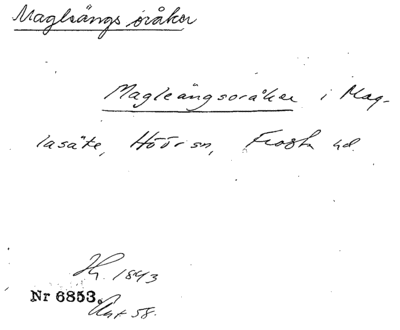 Magleängsoråker
Magleängsoråker i Mag-
lasäte, Höörs sn, Frosta hd.
Hy. 1843
Nr 6853.
Ant 58.